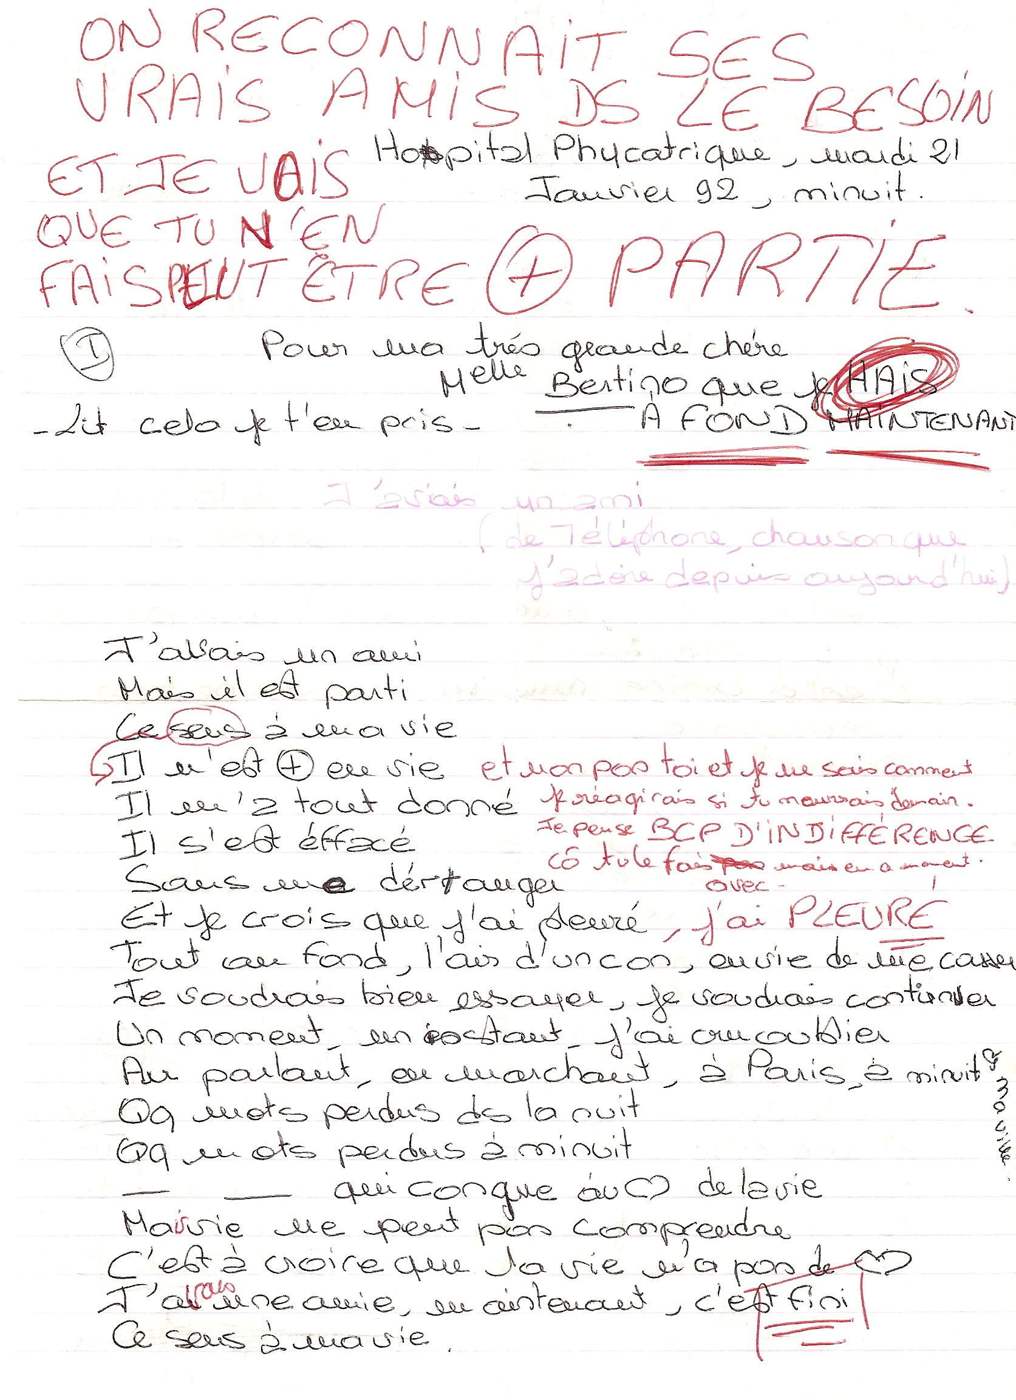 ON RECONNAIT SES
VRAIS AMIS DS LE BESOIN
Hospital Phycatrique, mardi 21
ET JE VAIS
Janvier 92, minuit.
QUE TU N'EN
FAIS PEUT ÊTRE + PARTIE.
I
Pour ma trés grande chére
Melle Bertino que je HAIS
- Lit cela je t'en pris - A FOND MAINTENANT
J'avais un ami
(de Téléphone, chanson que
j'adore depuis aujourd'hui)
J'avais un ami
Mais il est parti
Ce sens à ma vie
Il n'est + en vie et non pas toi et je ne sais comment
Il m'a tout donné je réagirais si tu mourrais demain.
Il s'est éffacé Je pense BCP D'INDIFFÉRENCE
cô tu le fais avec moi en a moment.
Sans me déranger
Et je crois que j'ai pleuré, j'ai PLEURÉ
Tout au fond, l'air d'un con, envie de me casser
Je voudrais bien essayer, je voudrais continuer
Un moment, un instant, j'ai cru oublier
Au parlant, en marchant, à Paris, à minuit
ma ville.
Qq mots perdus ds la nuit
Qq mots perdus à minuit
— — qui conque au ♡ de la vie
Ma vie ne peut pas comprendre
C'est à croire que la vie n'a pas de ♡
J'avais une amie, maintenant, c'est fini
Ce sens à ma vie.